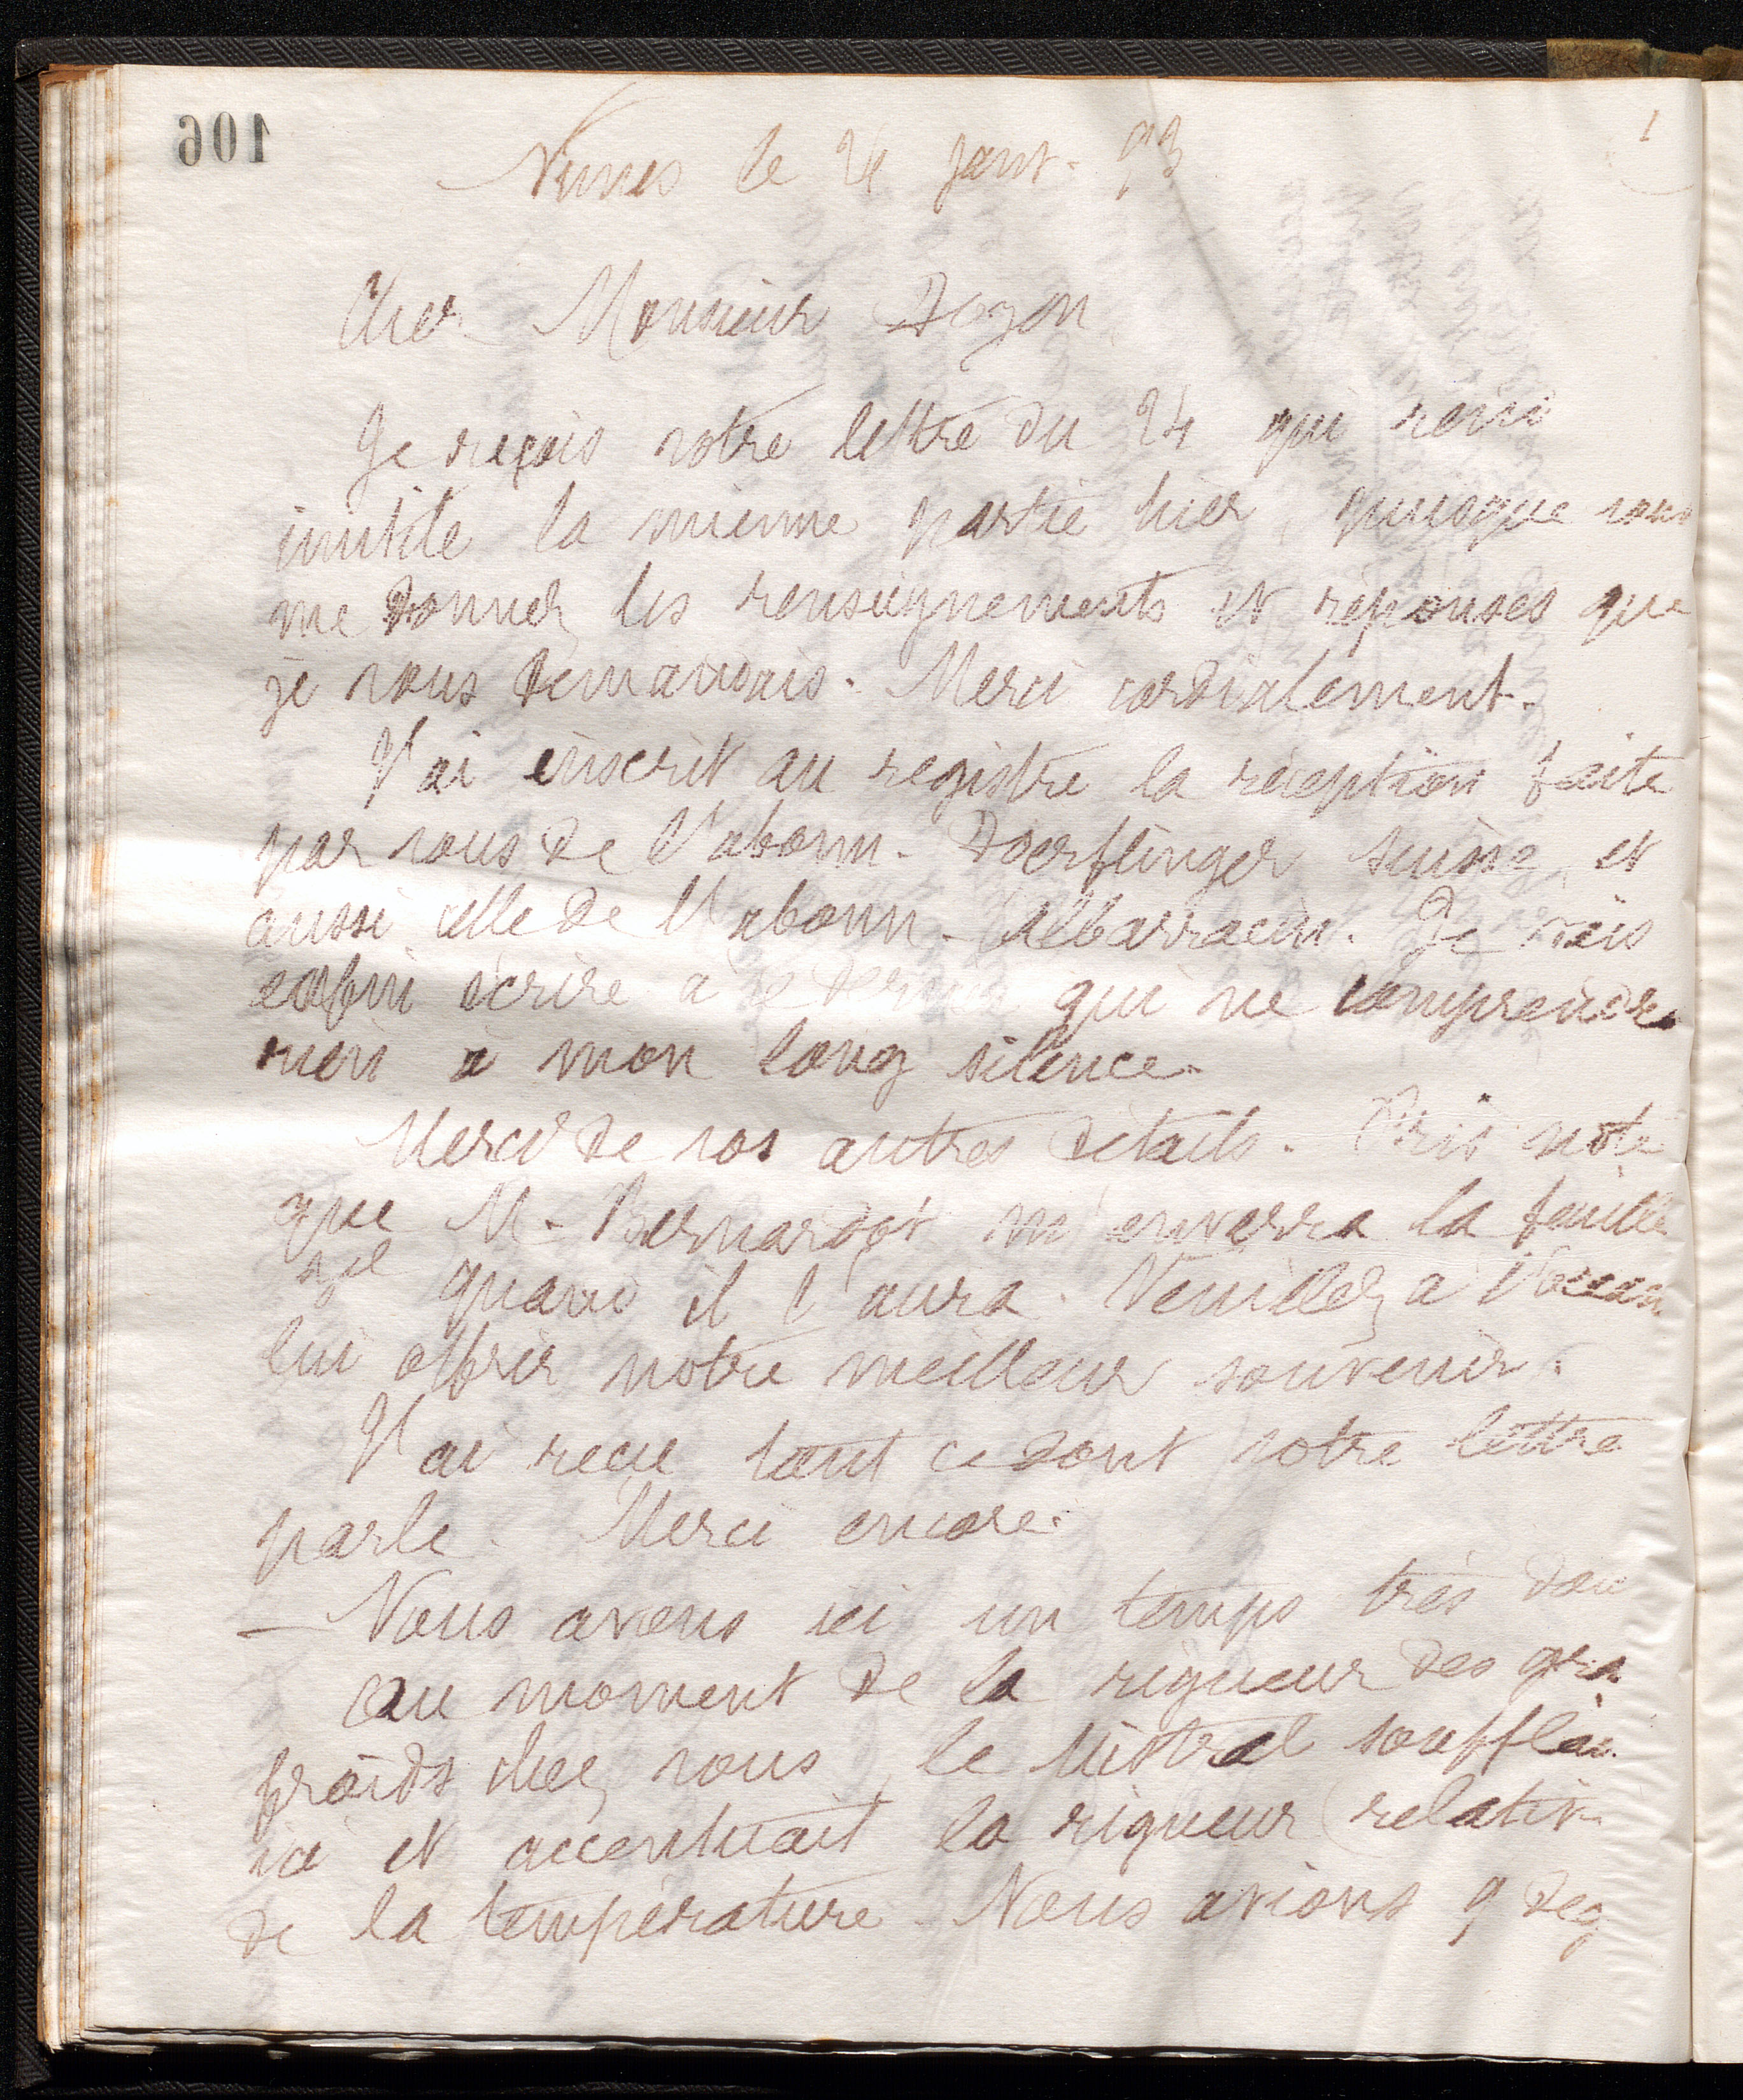 106
1
Nimes le 26 janv. 93
Cher Monsieur Doyon
Je reçois votre lettre du 24 qui rend
inutile la mienne partie hier, puisque vous
me donnez les renseignements et réponses que
je vous demandais. Merci cordialement.
J'ai inscrit au registre la réception faite
par vous de l'abonn. Doerflinger suisse, et
aussi celle de l'abonn. Albarracin. Je vais
enfin écrire à ce dernier qui ne comprendra
rien à mon long silence.
Merci de vos autres détails. Pris note
que M. Bernardot m'enverra la feuille
quand il l'aura. Veuillez à l'occasion
lui offrir notre meilleur souvenir.
J'ai reçu tout ce dont votre lettre
parle. Merci encore.
— Nous avons ici un temps très dou
au moment de la rigueur des gra
froids chez vous, le mistral soufflai
ici et accentuait la rigueur (relativ
de la température. Nous avions 9 deg